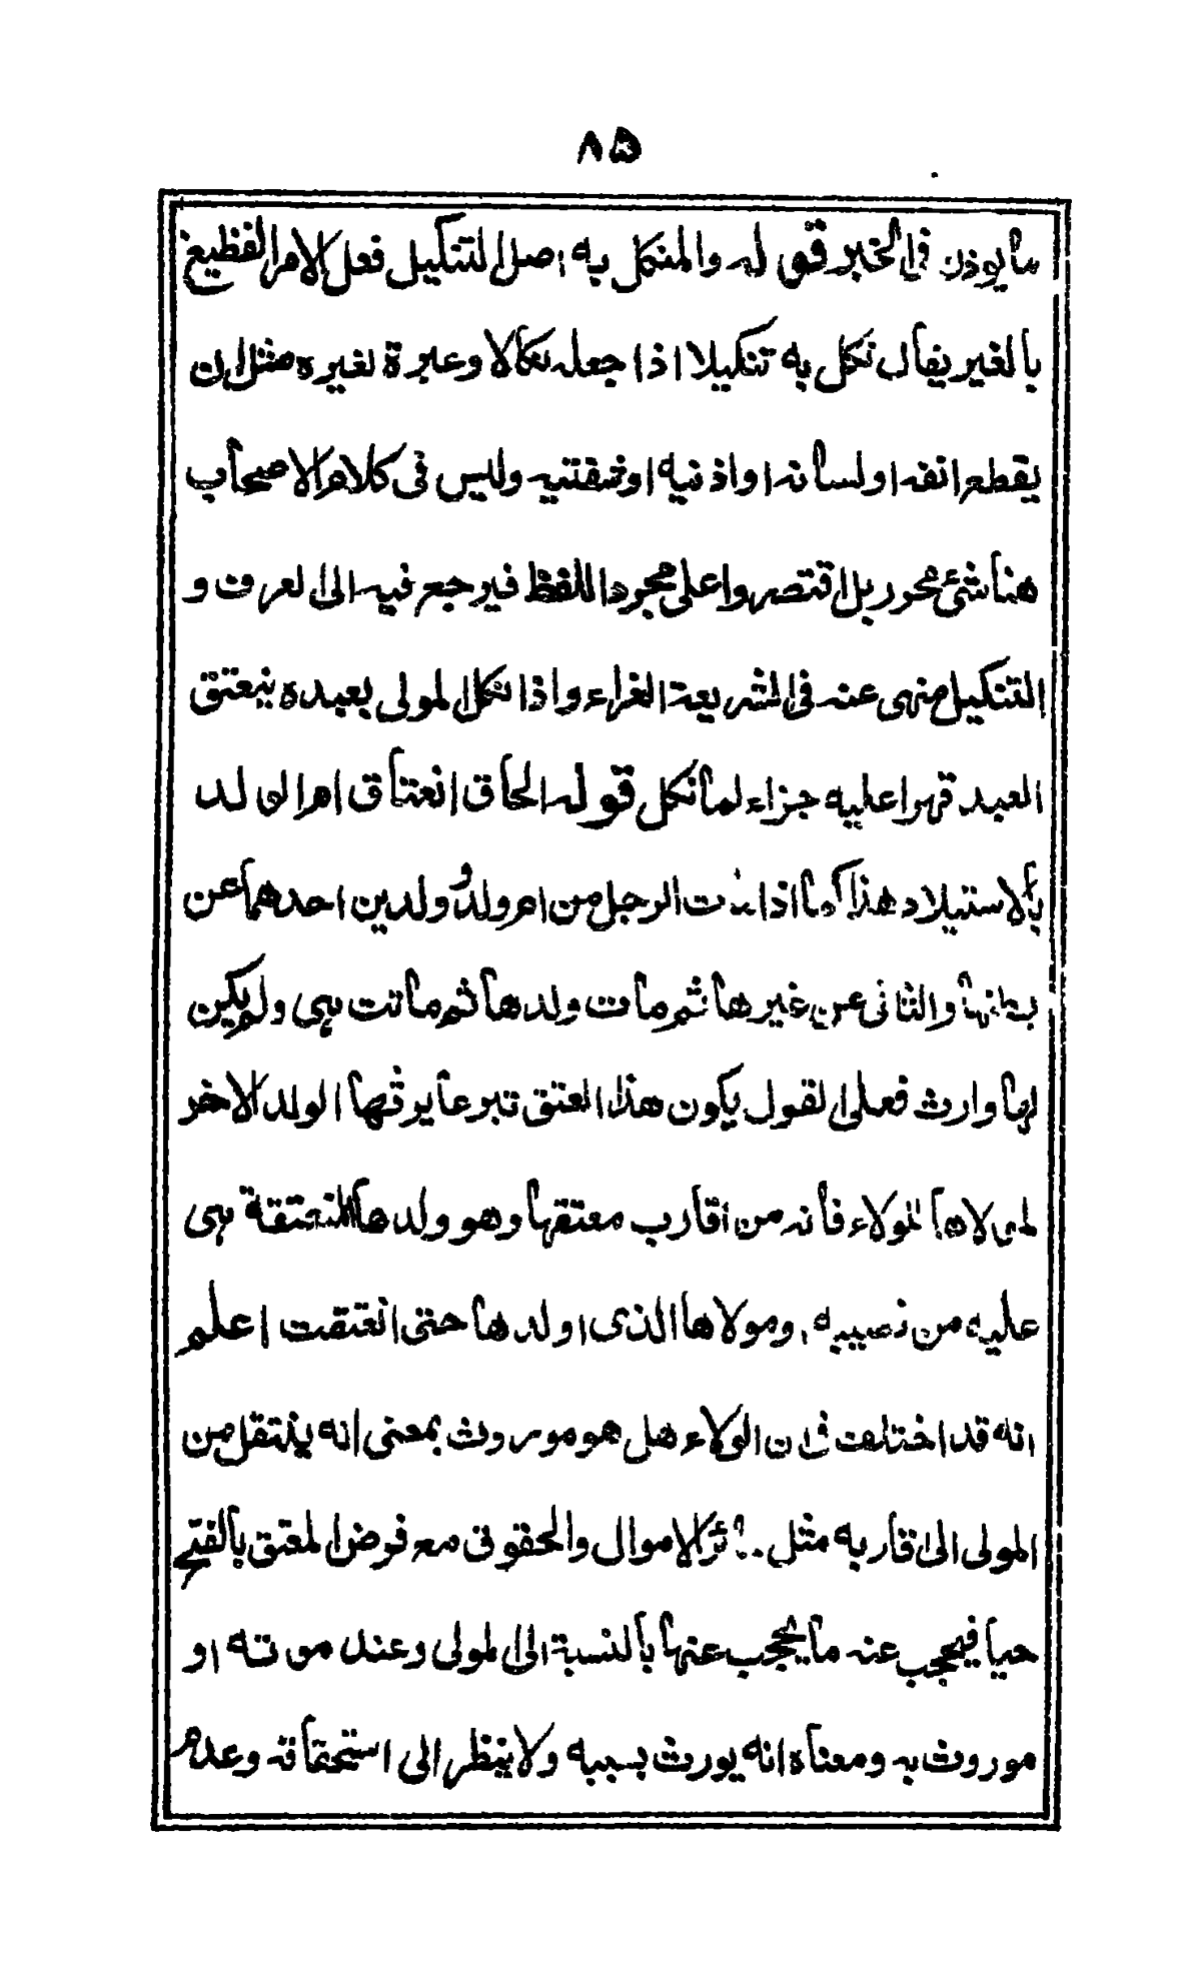 ٨٥
ما يوذن فى الخبر قوله والمنكل به اصل التنكيل فعل الامر الفظيع
بالغير يقال نكل به تنكيلا اذا جعله نكالا وعبرة لغيره مثل ان
يقطع انفه او لسانه او اذنيه او شفتيه وليس فى كلام الاصحاب
هنا شئ محرر بل اقتصروا على مجرد اللفظ فيرجع فيه الى العرف و
التنكيل منهى عنه فى الشريعة الغراء واذا نكل المولى بعبده ينعتق
العبد قهرا عليه جزاء لما نكل قوله الحاق انعتاق ام الولد
بالاستيلاد هذا كما اذا مات الرجل من ام ولد وولدين احدهما عن
بطنها والثانى عن غيرها ثم مات ولدها ثم ماتت هى ولم يكن
لها وارث فعلى القول يكون هذا العتق تبرعا يرثها الولد الاخر
لمولاها الولاء فانه من اقارب معتقها وهو ولدها المنعتقة هى
عليه من نصيبه ومولاها الذى اولدها حتى انعتقت اعلم
انه قد اختلف فى ان الولاء هل هو موروث بمعنى انه ينتقل من
المولى الى اقاربه مثل الاموال والحقوق مع فرض المعتق بالفتح
حيا فيحجب عنه ما يحجب عنها بالنسبة الى المولى وعند موته او
موروث به ومعناه انه يورث بسببه ولا ينظر الى استحقاقه وعدم